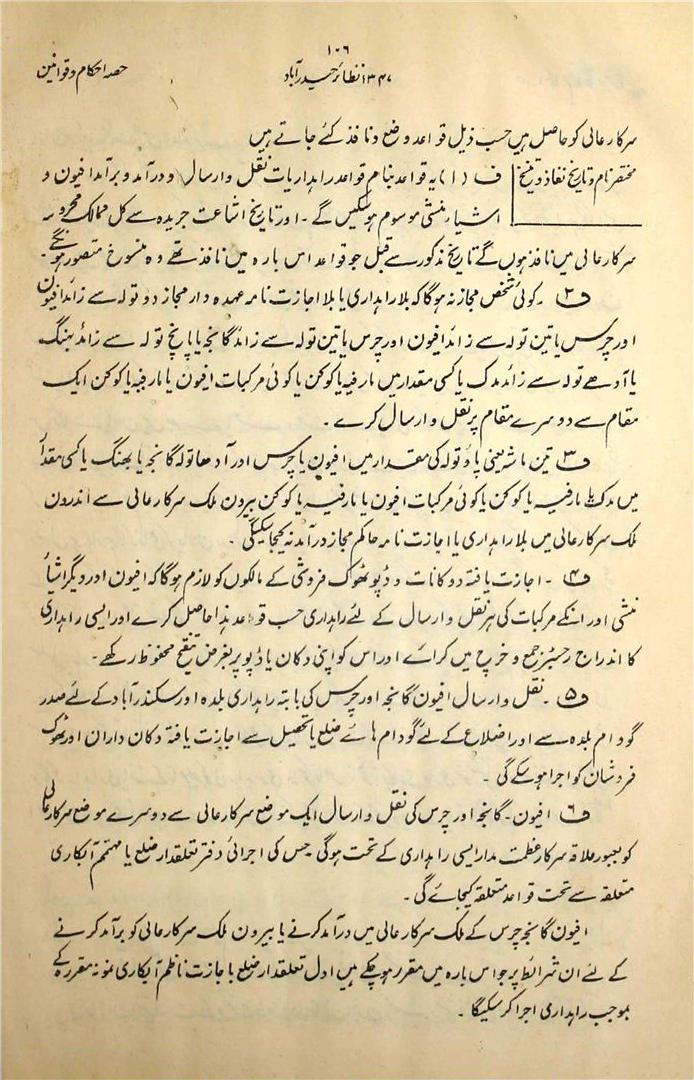 ۱۰۶
۱۳۴۷ نظائر حیدرآباد
حصہ احکام و قوانین
سرکار عالی کو حاصل ہیں حسب ذیل قواعد وضع و نافذ کئے جاتے ہیں
مختصر نام و تاریخ نفاذ و تنسیخ ف (۱) یہ قواعد بنام قواعد راہداریات نقل و ارسال و درآمد و برآمد افیون و
اشیاء منشی موسوم ہو سکیں گے ۔ اور تاریخ اشاعت جریدہ سے کل ممالک محروسہ
سرکار عالی میں نافذ ہوں گے تاریخ مذکور سے قبل جو قواعد اس بارہ میں نافذ تھے وہ منسوخ متصور ہونگے۔
ف۲ ۔ کوئی شخص مجاز نہ ہوگا کہ بلا راہداری یا بلا اجازت نامہ عہدہ دار مجاز دو تولہ سے زائد افیون
اور چرس یا تین تولہ سے زائد افیون اور چرس یا تین تولہ سے زائد گانجہ یا پانچ تولہ سے زائد بھنگ
یا آدھے تولہ سے زائد مدک یا کسی مقدار میں مارفیہ یا کوکن یا کوئی مرکبات افیون یا مارفیہ یا کوکن ایک
مقام سے دوسرے مقام پر نقل و ارسال کرے ۔
ف۳ تین ماشہ یعنی پاؤ تولہ کی مقدار میں افیون یا چرس اور آدھا تولہ گانجہ یا بھنگ یا کسی مقدار
میں مدک یا مارفیہ یا کوکن یا کوئی مرکبات افیون یا مارفیہ یا کوکن بیرون ملک سرکار عالی سے اندرون
ملک سرکار عالی میں بلا راہداری یا اجازت نامہ حاکم مجاز درآمد نہ کیجا سکیگی ۔
ف۴ ۔ اجازت یافتہ دوکانات و ڈپو تھوک فروشی کے مالکوں کو لازم ہوگا کہ افیون اور دیگر اشیاء
منشی اور انکے مرکبات کی ہر نقل و ارسال کے لئے راہداری حسب قواعد ہذا حاصل کرے اور ایسی راہداری
کا اندراج رجسٹر جمع و خرچ میں کرائے اور اس کو اپنی دکان یا ڈپو پر بغرض تنقیح محفوظ رکھے۔
ف۵ ۔ نقل و ارسال افیون گانجہ اور چرس کی بابتہ راہداری بلدہ اور سکندرآباد کے لئے صدر
گودام بلدہ سے اور اضلاع کے لئے گودام ہائے ضلع یا تحصیل سے اجازت یافتہ دکان داران اور تھوک
فروشان کو اجرا ہو سکے گی ۔
ف۶ افیون ۔ گانجہ اور چرس کی نقل و ارسال ایک موضع سرکار عالی سے دوسرے موضع سرکار عالی
کو بعبور علاقہ سرکار عظمت مدار ایسی راہداری کے تحت ہوگی جس کی اجرائی دفتر تعلقدار ضلع یا مہتمم آبکاری
متعلقہ سے تحت قواعد متعلقہ کیجائے گی ۔
افیون گانجہ چرس کے ملک سرکار عالی میں درآمد کرنے یا بیرون ملک سرکار عالی کو برآمد کرنے
کے لئے ان شرائط پر جو اس بارہ میں مقرر ہو چکے ہیں اول تعلقدار ضلع با جازت ناظم آبکاری نمونہ مقررہ کے
بموجب راہداری اجرا کر سکیگا ۔